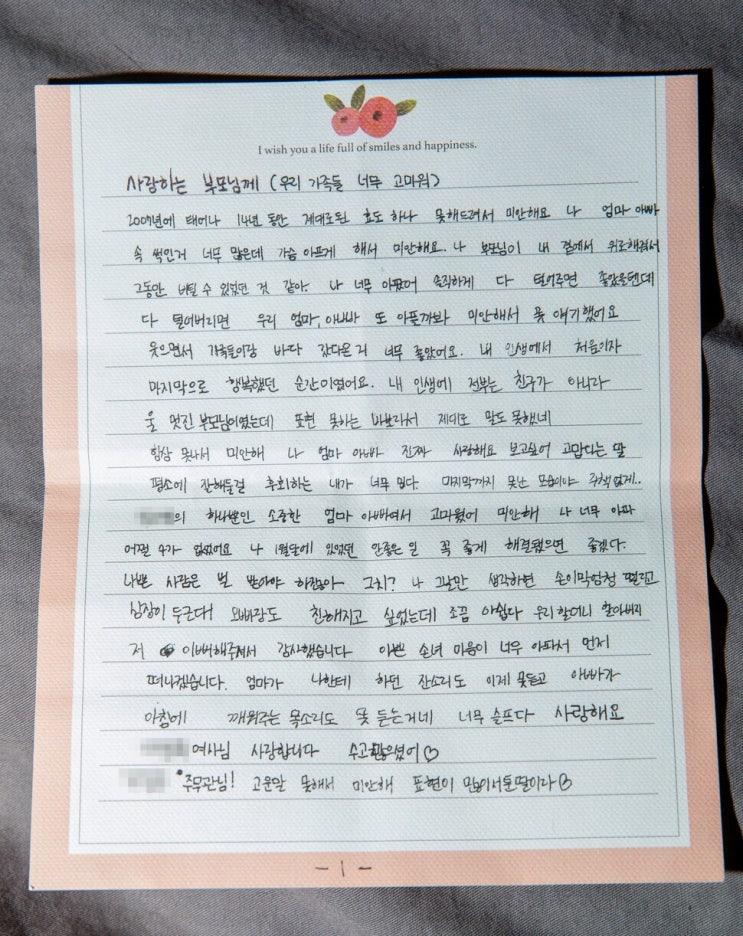 I wish you a life full of smiles and happiness.
사랑하는 부모님께 (우리 가족들 너무 고마워)
2007년에 태어나 14년 동안 제대로된 효도 하나 못해드려서 미안해요 나 엄마 아빠
속 썩인거 너무 많은데 가슴 아프게 해서 미안해요. 나 부모님이 내 곁에서 위로해줘서
그동안 버틸 수 있었던 것 같아. 나 너무 아팠어 솔직하게 다 털어주면 좋았을텐데
다 털어버리면 우리 엄마, 아빠가 또 아플까봐 미안해서 못 얘기했어요
웃으면서 가족들이랑 바다 갔다온거 너무 좋았어요. 내 인생에서 처음이자
마지막으로 행복했던 순간이였어요. 내 인생에 전부는 친구가 아니라
울 멋진 부모님이였는데 표현 못하는 바보라서 제대로 말도 못했네
항상 못나서 미안해 나 엄마 아빠 진짜 사랑해요 보고싶어 고맙다는 말
평소에 잘해둘걸 후회하는 내가 너무 밉다. 마지막까지 못난 모습이야 주책 없게..
의 하나뿐인 소중한 엄마 아빠여서 고마웠어 미안해 나 너무 아파
어쩔 수가 없었어요 나 1월달에 있었던 안좋은 일 꼭 좋게 해결됐으면 좋겠다.
나쁜 사람은 벌 받아야 하잖아 그치? 나 그날만 생각하면 손이 막 엄청 떨리고
심장이 두근대! 오빠랑도 친해지고 싶었는데 조금 아쉽다 우리 할머니 할아버지
저 이뻐해주셔서 감사했습니다 이쁜 손녀 마음이 너무 아파서 먼저
떠나겠습니다. 엄마가 나한테 하던 잔소리도 이제 못듣고 아빠가
아침에 깨워주는 목소리도 못 듣는거네 너무 슬프다 사랑해요
여사님 사랑합니다 수고많으셨어♡
주무관님! 고운말 못해서 미안해 표현이 많이서툰딸이라♡
- 1 -